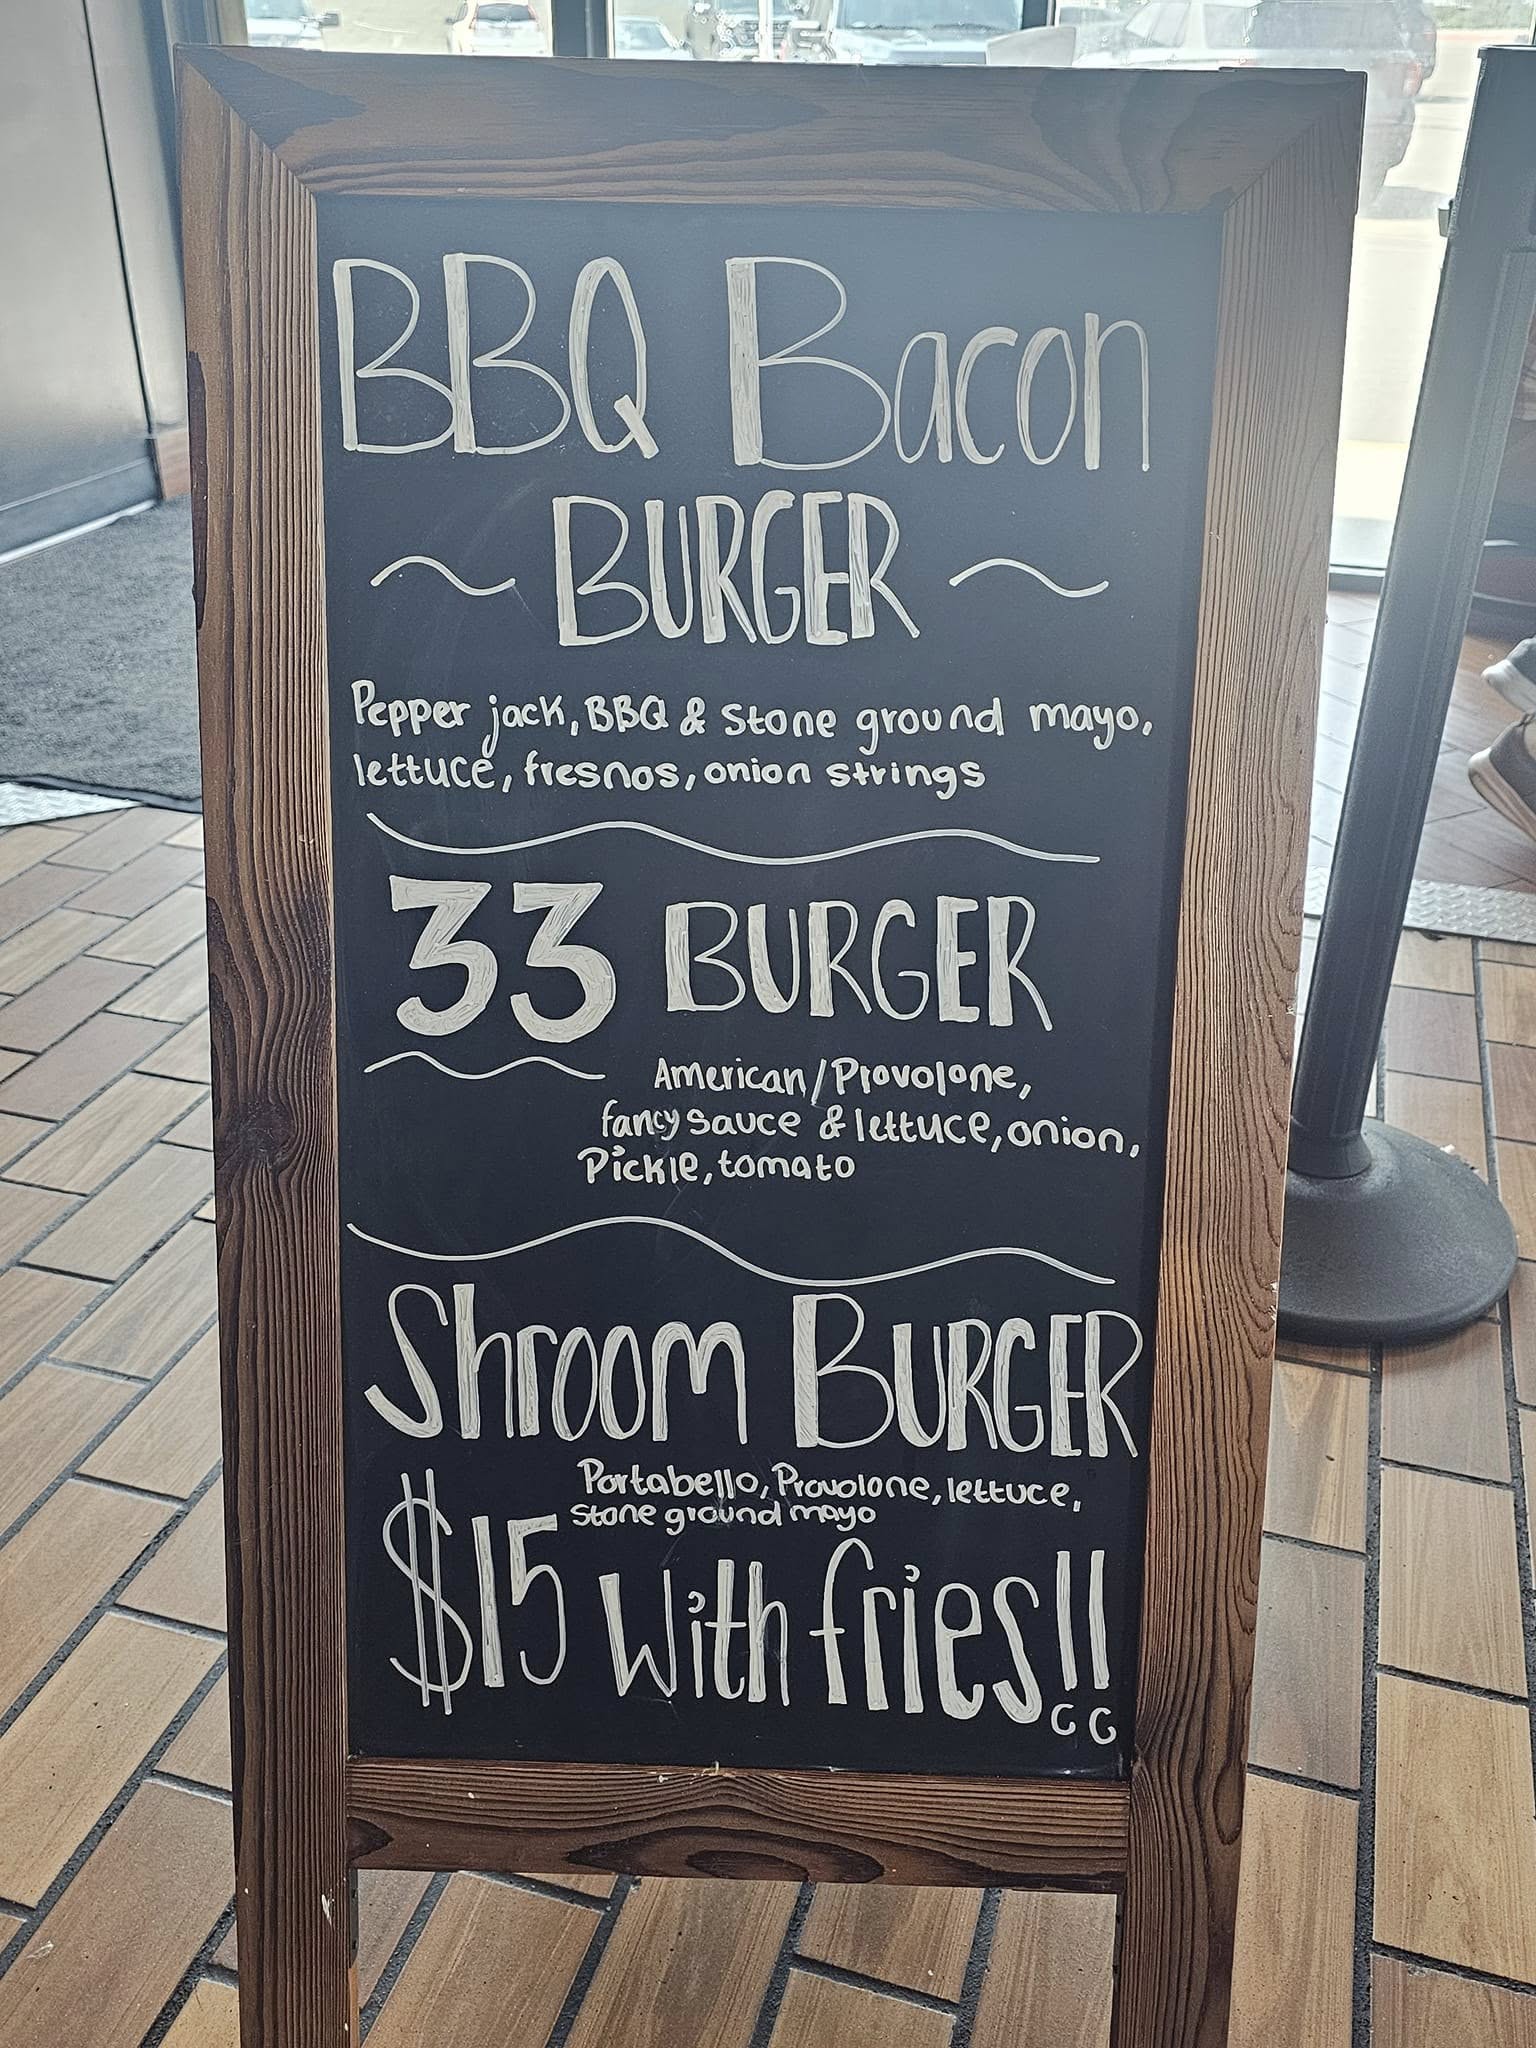 BBQ Bacon
~ BURGER ~
Pepper jack, BBQ & Stone ground mayo,
lettuce, fresnos, onion strings
33 BURGER
American/Provolone,
fancy sauce & lettuce, onion,
Pickle, tomato
Shroom BURGER
Portabello, Provolone, lettuce,
Stone ground mayo
$15 With fries!!